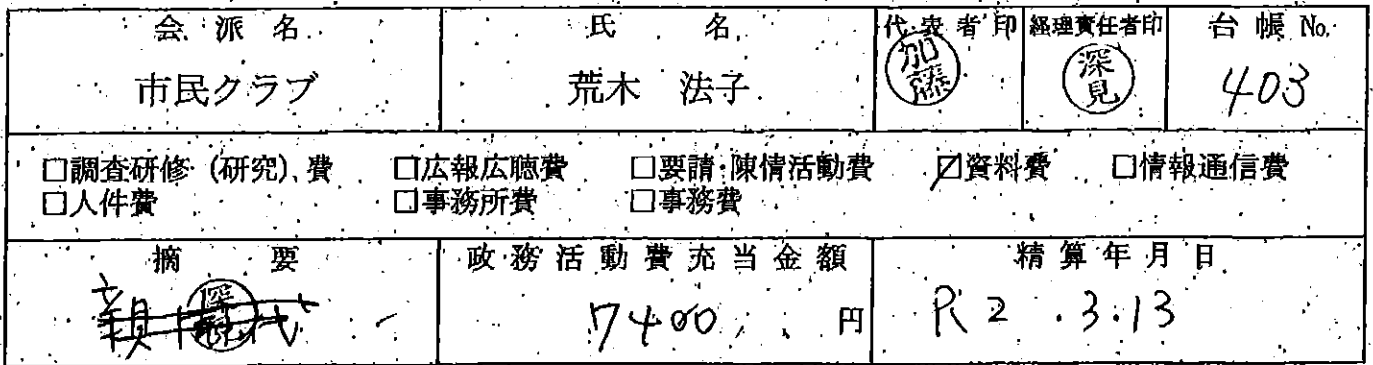 会派名 氏名 代表者印 経理責任者印 台帳 No.
市民クラブ 荒木 法子 加藤 深見 403
□調査研修(研究)費 □広報広聴費 □要請・陳情活動費 ☑資料費 □情報通信費
□人件費 □事務所費 □事務費
摘要 政務活動費充当金額 精算年月日
7400 円 R2.3.13